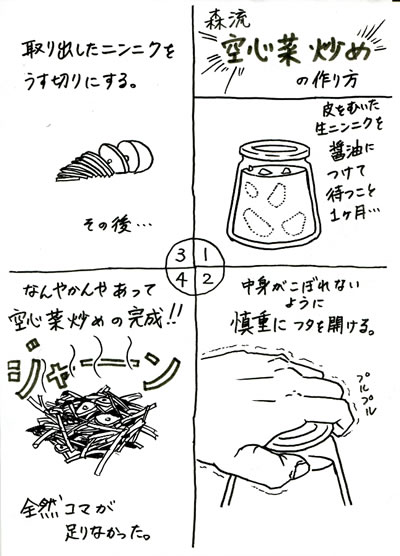 森流
空心菜炒め
の作り方
皮をむいた
生ニンニクを
醤油に
つけて
待つこと
1ヶ月…
1
2
中身がこぼれない
ように
慎重にフタを開ける。
プル
プル
取り出したニンニクを
うす切りにする。
その後…
3
4
なんやかんやあって
空心菜炒めの完成!!
ジャーーン
全然コマが
足りなかった。